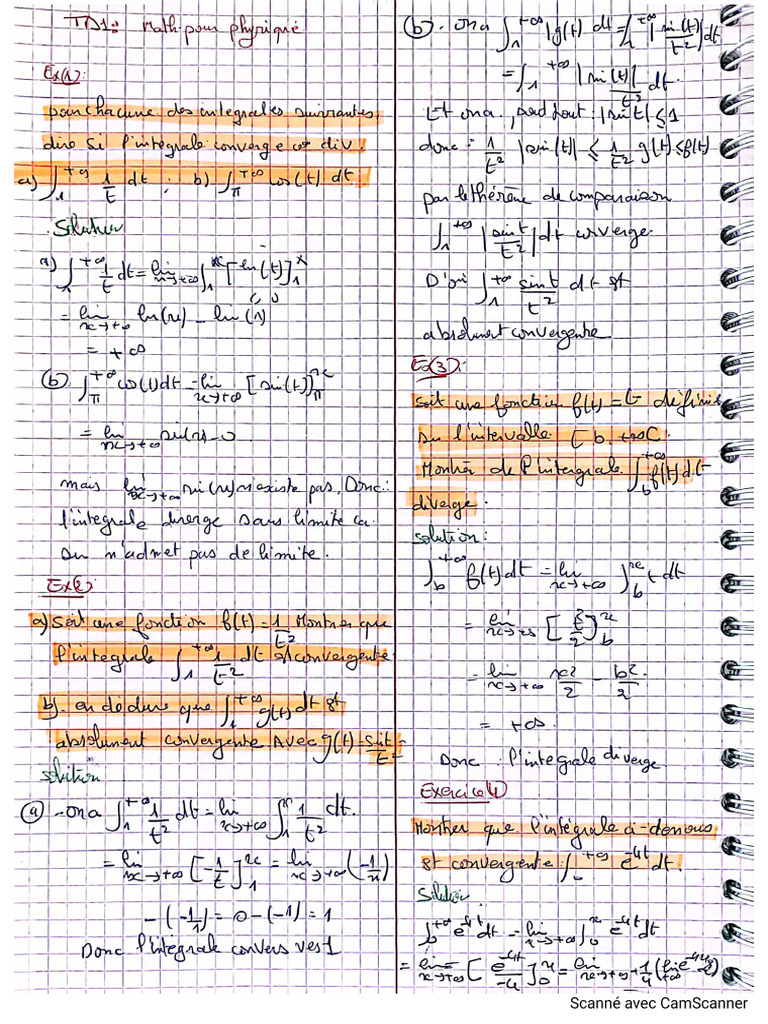 TD1: Math pour physique
Ex(1):
pour chacune des integrales suivantes,
dire si l'intégrale converge ou div.
a) ∫₁^{+∞} 1/t dt ; b) ∫_π^{+∞} cos(t) dt.
Solution
a) ∫₁^{+∞} 1/t dt = lim_{x→+∞} ∫₁^x [ln(t)]₁^x
= lim_{x→+∞} ln(x) - ln(1)
= +∞
(b) ∫_π^{+∞} cos(t)dt = lim_{x→+∞} [sin(t)]_π^x
= lim_{x→+∞} sin x - 0
mais lim_{x→+∞} sin(x) n'existe pas. Donc:
l'integrale diverge sans limite ca
sin n'admet pas de limite.
Ex(2)
a) Soit une fonction f(t) = 1/t² Montrer que
l'integrale ∫₁^{+∞} 1/t² dt est convergente
b) en déduire que ∫₁^{+∞} g(t) dt est
absolument convergente Avec g(t) = sin t/t²
solution
(a) - on a ∫₁^{+∞} 1/t² dt = lim_{x→+∞} ∫₁^x 1/t² dt.
= lim_{x→+∞} [-1/t]₁^x = lim_{x→+∞} (-1/x)
- (-1/1) = 0 - (-1) = 1
Donc l'intégrale convers vers 1
(b) - on a ∫₁^{+∞} |g(t)| dt = ∫₁^{+∞} |sin(t)/t²| dt
= ∫₁^{+∞} |sin(t)|/t² dt.
Et on a, partout: |sin t| ≤ 1
donc: 1/t² |sin(t)| ≤ 1/t² g(t) ≤ f(t)
par le théorème de comparaison
∫₁^{+∞} |sin t/t²| dt converge.
D'où ∫₁^{+∞} sin t/t² dt est
absolument convergente
Ex(3):
Soit une fonction f(t) = t définie
su l'intervalle [b, +∞[.
Montrer de l'intergrale ∫_b^{+∞} f(t) dt
diverge.
solution:
∫_b^{+∞} f(t) dt = lim_{x→+∞} ∫_b^x t dt
= lim_{x→+∞} [t²/2]_b^x
= lim_{x→+∞} x²/2 - b²/2.
= +∞.
Donc: l'integrale diverge
Exercice 4
Montrer que l'intégrale ci-dessous
est convergente: ∫₀^{+∞} e^{-4t} dt.
Solution
∫₀^{+∞} e^{-4t} dt = lim_{x→+∞} ∫₀^x e^{-4t} dt
= lim_{x→+∞} [e^{-4t}/-4]₀^x = lim_{x→+∞}
Scanné avec CamScanner